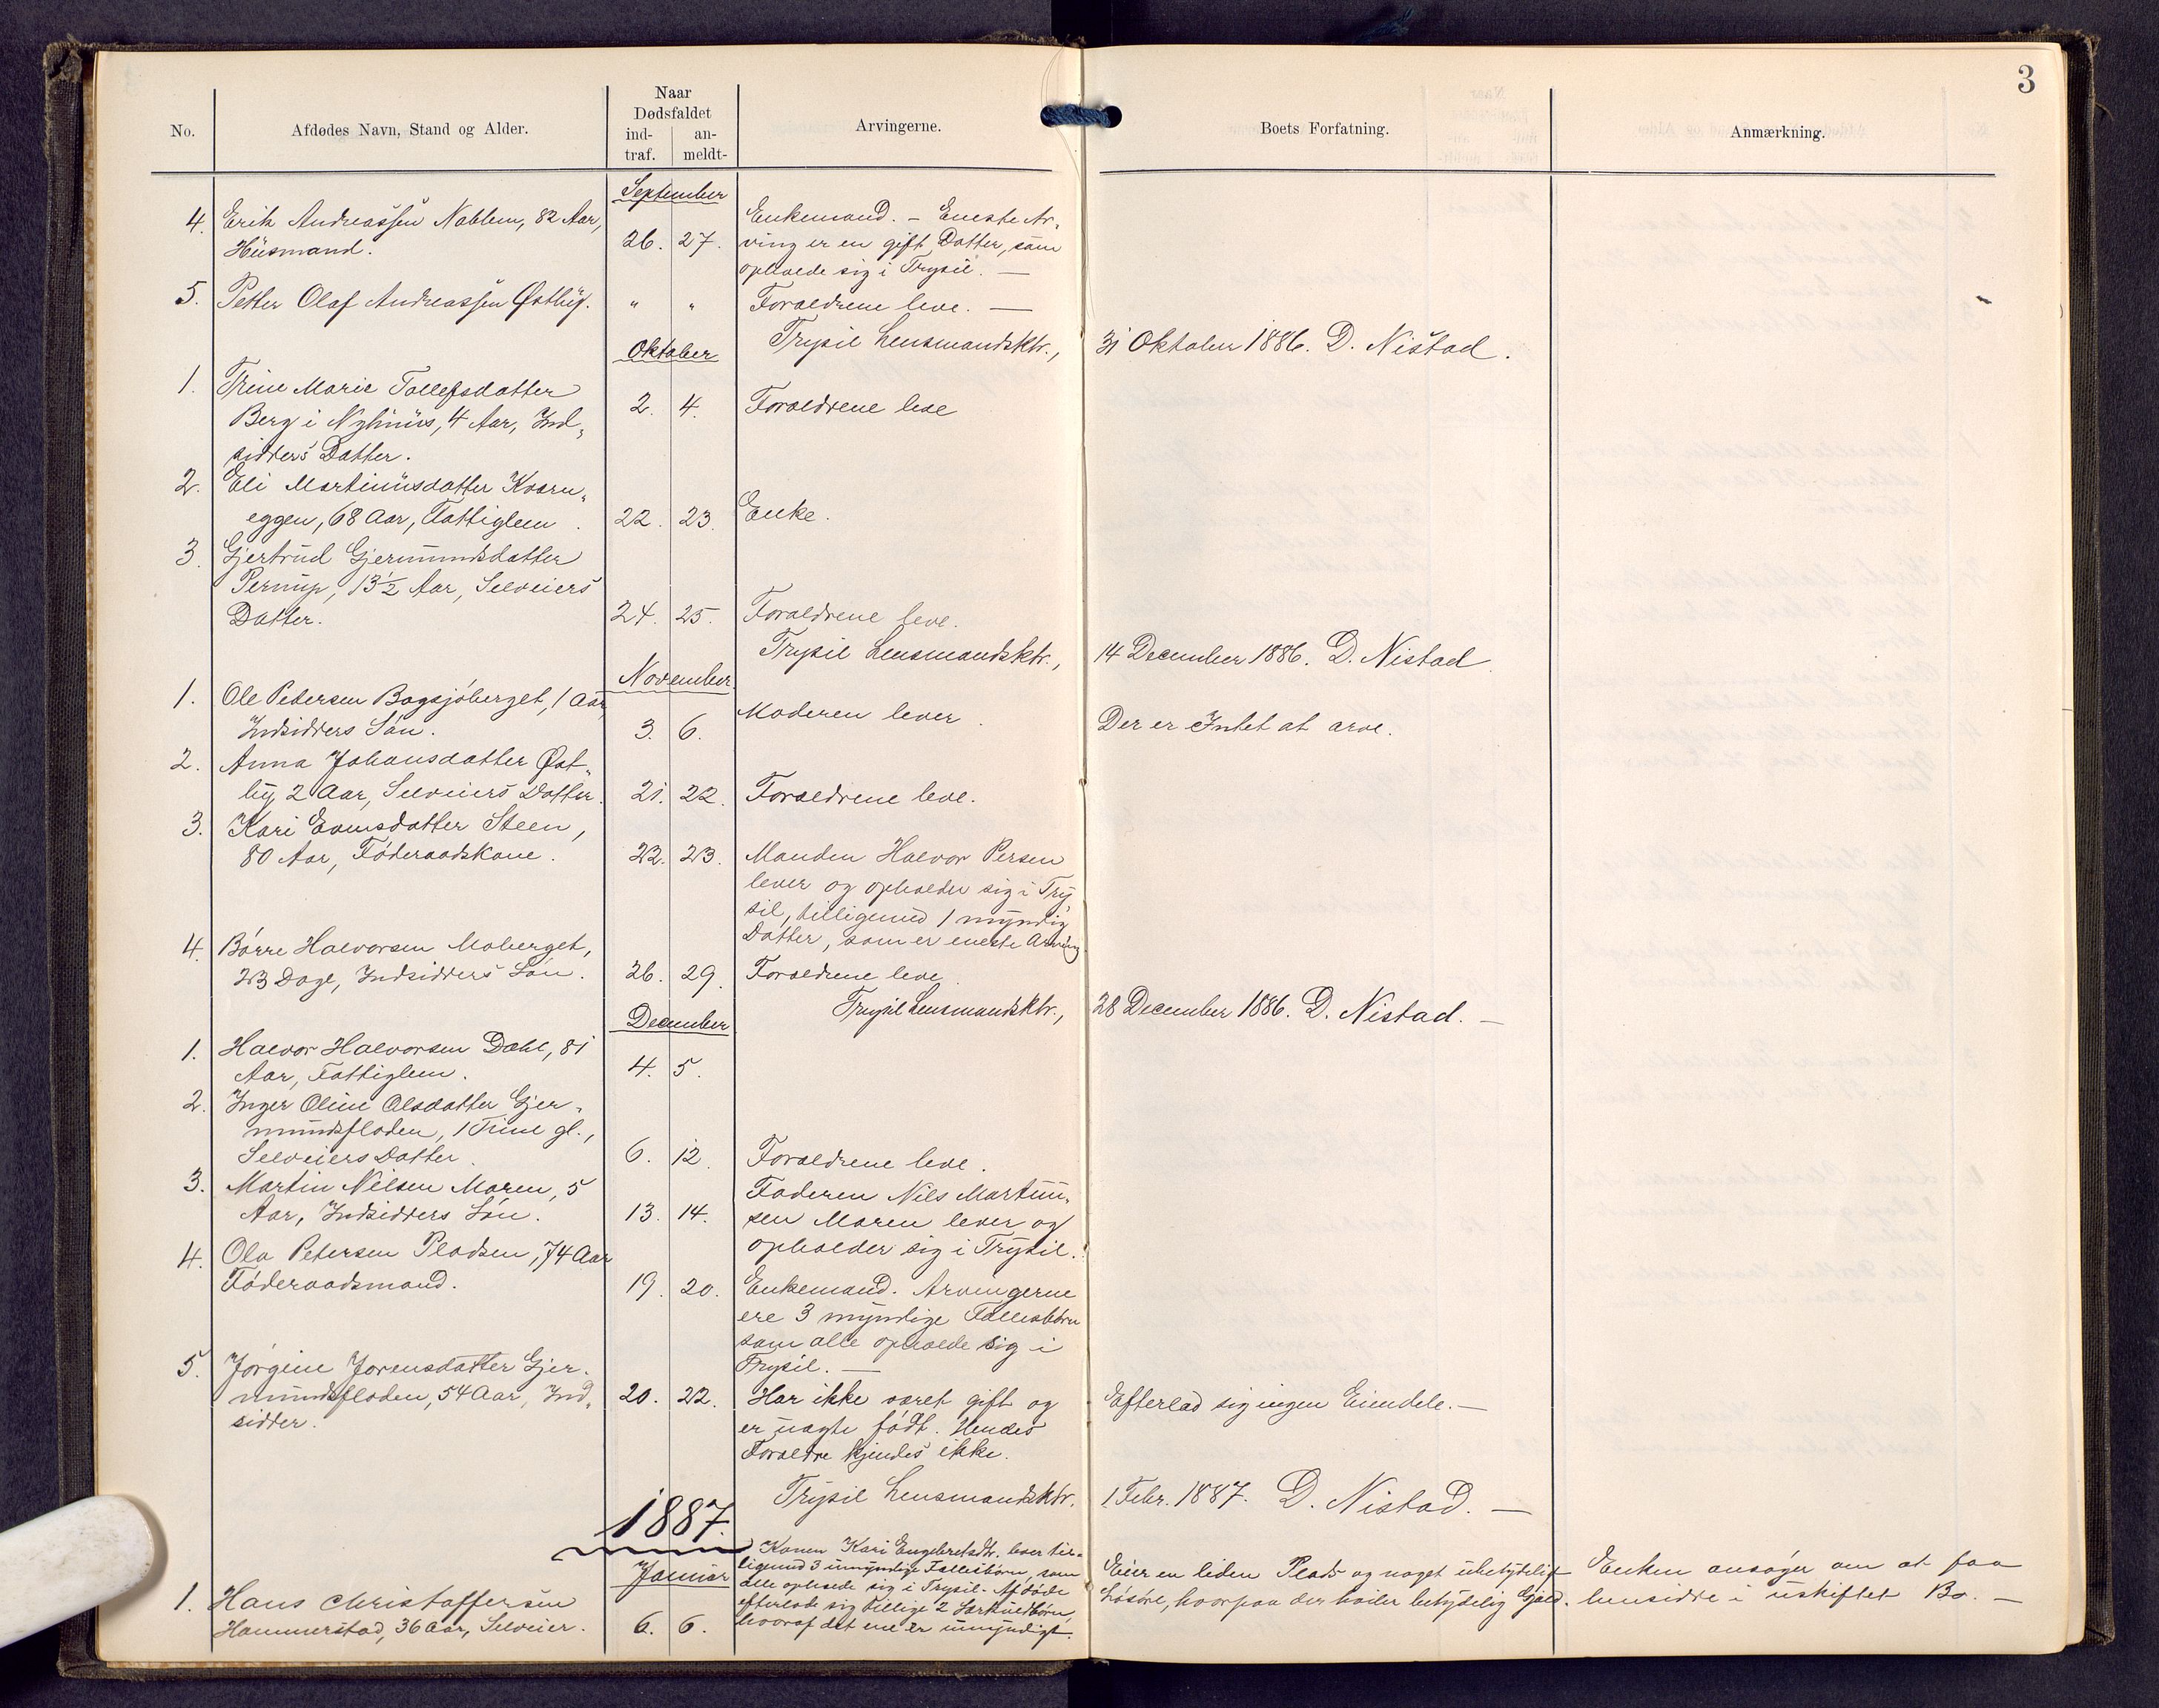 3
No.
Afdødes Navn, Stand og Alder.
Naar
Dødsfaldet
ind-
traf.
an-
meldt-
Arvingerne.
Boets Forfatning.
Anmærkning.
September
4. Erik Andreassen Nablem, 82 Aar,
Husmand.
26. 27.
Enkemand. – Eneste Ar„
ving er en gift Datter, som
opholde sig i Trysil. —
5. Petter Olaf Andreassen Østbÿ.
" "
Foraldrene leve. —
Trysil Lensmandsktr.,
31 Oktober 1886. D. Nistad.
Oktober
1. Trine Marie Tollefsdatter
Berg i Nÿhuus, 4 Aar, Ind„
sidders Datter.
2. 4.
Foraldrene leve
2. Eli Martinusdatter Kvarn„
eggen, 68 Aar, Fattiglem.
22. 23.
Enke.
3. Gjertrud Gjermundsdatter
Pernup, 13½ Aar, Selveiers
Datter.
24. 25.
Foraldrene leve.
Trysil Lensmandsktr.,
14 December 1886. D. Nistad
November
1. Ole Petersen Bagsjøberget, 1 Aar,
Indsidders Søn.
3. 6.
Moderen lever.
Der er Intet at arve.
2. Anna Johansdatter Øst„
bÿ, 2 Aar, Selveiers Datter.
21. 22.
Foraldrene leve.
3. Kari Evensdatter Steen,
80 Aar, Føderaadskone.
22. 23.
Manden Halvor Persen
lever og opholder sig i Try„
sil, tilligemed 1 myndig
Datter, som er eneste Arving
4. Børre Halvorsen Moberget,
23 Dage, Indsidders Søn.
26. 29.
Foraldrene leve
Trysil Lensmandsktr.,
28 December 1886. D. Nistad. —
December
1. Halvor Halvorsen Dahl, 81
Aar, Fattiglem.
4. 5.
2. Inger Oline Olsdatter Gjer„
mundsfloden, 1 Time gl.,
Selveiers Datter.
6. 12.
Foraldrene leve.
3. Martin Nilsen Moren, 5
Aar, Indsidders Søn.
13. 14.
Faderen Nils Martin„
sen Moren lever og
opholder sig i Trysil.
4. Ola Petersen Pladsen, 74 Aar
Føderaadsmand.
19. 20.
Enkemand. Arvingerne
ere 3 myndige Fællesbørn
som alle opholde sig i
Trysil. —
5. Jørgine Jørensdatter Gjer„
mundsfloden, 54 Aar, Ind„
sidder.
20. 22.
Har ikke været gift og
er uægte født. Hendes
Foraldre kjendes ikke.
Efterlod sig ingen Eiendele. —
Trysil Lensmandsktr.
1 Febr. 1887. D. Nistad. —
1887.
Januar
1. Hans Christoffersen
Hammerstad, 36 Aar, Selveier.
6. 6.
Konen Kari Engebretsdtr. lever til„
ligemed 3 umyndige Fællesbørn, som
alle opholde sig i Trysil. Afdøde
efterlod sig tillige 2 Særkuldbørn,
hvoraf det ene er umyndigt.
Eier en liden Plads og noget ubetydeligt
Løsøre, hvorpaa der hviler betydelig Gjæld.
Enken ansøger om at faa
hensidde i uskiftet Bo. —